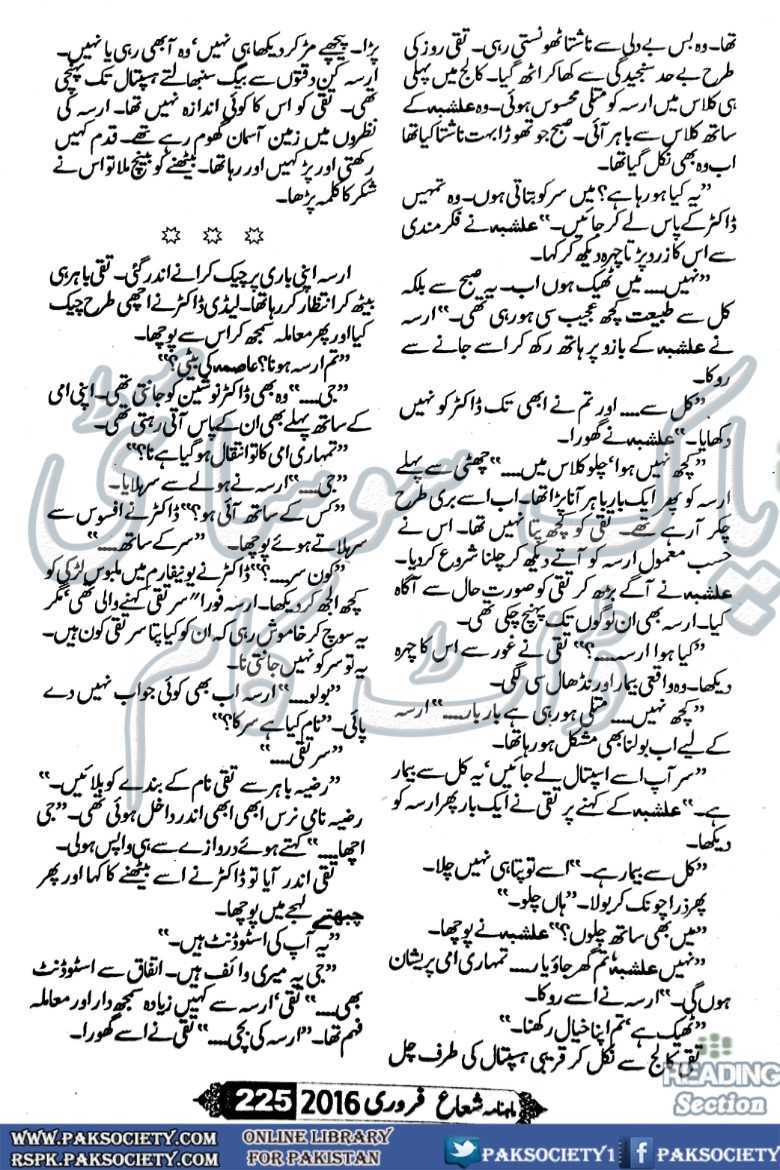 تھا۔ وہ بس بے دلی سے ناشتا ٹھونستی رہی۔ تقی روز کی
طرح بے حد سنجیدگی سے کھا کر اٹھ گیا۔ کالج میں پہلی
ہی کلاس میں ارسہ کو متلی محسوس ہوئی۔ وہ علشبہ کے
ساتھ کلاس سے باہر آئی۔ صبح جو تھوڑا بہت ناشتا کیا تھا
اب وہ بھی نکل گیا تھا۔
”یہ کیا ہو رہا ہے؟ میں سر کو بتاتی ہوں۔ وہ تمہیں
ڈاکٹر کے پاس لے کر جائیں۔“ علشبہ نے فکر مندی
سے اس کا زرد پڑتا چہرہ دیکھ کر کہا۔
”نہیں.... میں ٹھیک ہوں اب۔ یہ صبح سے بلکہ
کل سے طبیعت کچھ عجیب سی ہو رہی تھی۔“ ارسہ
نے علشبہ کے بازو پر ہاتھ رکھ کر اسے جانے سے
روکا۔
”کل سے.... اور تم نے ابھی تک ڈاکٹر کو نہیں
دکھایا۔“ علشبہ نے گھورا۔
”کچھ نہیں ہوا‘ چلو کلاس میں....“ چھٹی سے پہلے
ارسہ کو پھر ایک بار باہر آنا پڑا تھا۔ اب اسے بری طرح
چکر آ رہے تھے۔ تقی کو کچھ پتا نہیں تھا۔ اس نے
حسب معمول ارسہ کو آتے دیکھ کر چلنا شروع کر دیا۔
علشبہ نے آگے بڑھ کر تقی کو صورت حال سے آگاہ
کیا۔ ارسہ بھی ان لوگوں تک پہنچ چکی تھی۔
”کیا ہوا ارسہ....؟“ تقی نے غور سے اس کا چہرہ
دیکھا۔ وہ واقعی بیمار اور نڈھال سی لگی۔
”کچھ نہیں.... متلی ہو رہی ہے بار بار....“ ارسہ
کے لیے اب بولنا بھی مشکل ہو رہا تھا۔
”سر آپ اسے اسپتال لے جائیں‘ یہ کل سے بیمار
ہے۔“ علشبہ کے کہنے پر تقی نے ایک بار پھر ارسہ کو
دیکھا۔
”کل سے بیمار ہے۔“ اسے تو پتا ہی نہیں چلا۔
پھر ذرا چونک کر بولا۔ ”ہاں چلو۔“
”میں بھی ساتھ چلوں؟“ علشبہ نے پوچھا۔
”نہیں علشبہ‘ تم گھر جاؤ یار.... تمہاری امی پریشان
ہوں گی۔“ ارسہ نے اسے روکا۔
”ٹھیک ہے‘ تم اپنا خیال رکھنا۔“
تقی کالج سے نکل کر قریبی ہسپتال کی طرف چل
پڑا۔ پیچھے مڑ کر دیکھا ہی نہیں‘ وہ آ بھی رہی یا نہیں۔
ارسہ کن دقتوں سے بیگ سنبھالتے ہسپتال تک پہنچی
تھی۔ تقی کو اس کا کوئی اندازہ نہیں تھا۔ ارسہ کی
نظروں میں زمین آسمان گھوم رہے تھے۔ قدم کہیں
رکھتی اور پڑ کہیں اور رہا تھا۔ بیٹھنے کو بینچ ملا تو اس نے
شکر کا کلمہ پڑھا۔
✡ ✡ ✡
ارسہ اپنی باری پر چیک کرانے اندر گئی۔ تقی باہر ہی
بیٹھ کر انتظار کر رہا تھا۔ لیڈی ڈاکٹر نے اچھی طرح چیک
کیا اور پھر معاملہ سمجھ کر اس سے پوچھا۔
”تم ارسہ ہونا؟ عاصمہ کی بیٹی؟“
”جی....“ وہ بھی ڈاکٹر نوشین کو جانتی تھی۔ اپنی امی
کے ساتھ پہلے بھی ان کے پاس آتی رہتی تھی۔
”تمہاری امی کا تو انتقال ہو گیا ہے نا؟“
”جی....“ ارسہ نے ہولے سے سر ہلایا۔
”کس کے ساتھ آئی ہو؟“ ڈاکٹر نے افسوس سے
سر ہلاتے ہوئے پوچھا۔ ”سر کے ساتھ....“
”کون سر....؟“ ڈاکٹر نے یونیفارم میں ملبوس لڑکی کو
کچھ الجھ کر دیکھا۔ ارسہ فورا”سر تقی کہنے والی تھی‘ مگر
یہ سوچ کر خاموش رہی کہ ان کو کیا پتا سر تقی کون ہیں۔
یہ تو سر کو نہیں جانتی نا۔
”بولو....“ ارسہ اب بھی کوئی جواب نہیں دے
پائی۔ ”نام کیا ہے سر کا؟“
”سر تقی....“
”رضیہ باہر سے تقی نام کے بندے کو بلائیں۔“
رضیہ نامی نرس ابھی ابھی اندر داخل ہوئی تھی۔ ”جی
اچھا....“ کہتے ہوئے دروازے سے ہی واپس ہولی۔
تقی اندر آیا تو ڈاکٹر نے اسے بیٹھنے کا کہا اور پھر
چبھتے لہجے میں پوچھا۔
”یہ آپ کی اسٹوڈنٹ ہیں۔“
”جی یہ میری وائف ہیں۔ اتفاق سے اسٹوڈنٹ
بھی....“ تقی‘ ارسہ سے کہیں زیادہ سمجھ دار اور معاملہ
فہم تھا۔ ”ارسہ کی بچی....“ تقی نے اسے گھورا۔
پاک سوسائٹی
ڈاٹ کام
READING
Section
ماہنامہ شعاع فروری 2016 225
WWW.PAKSOCIETY.COM
RSPK.PAKSOCIETY.COM
ONLINE LIBRARY
FOR PAKISTAN
PAKSOCIETY1
PAKSOCIETY